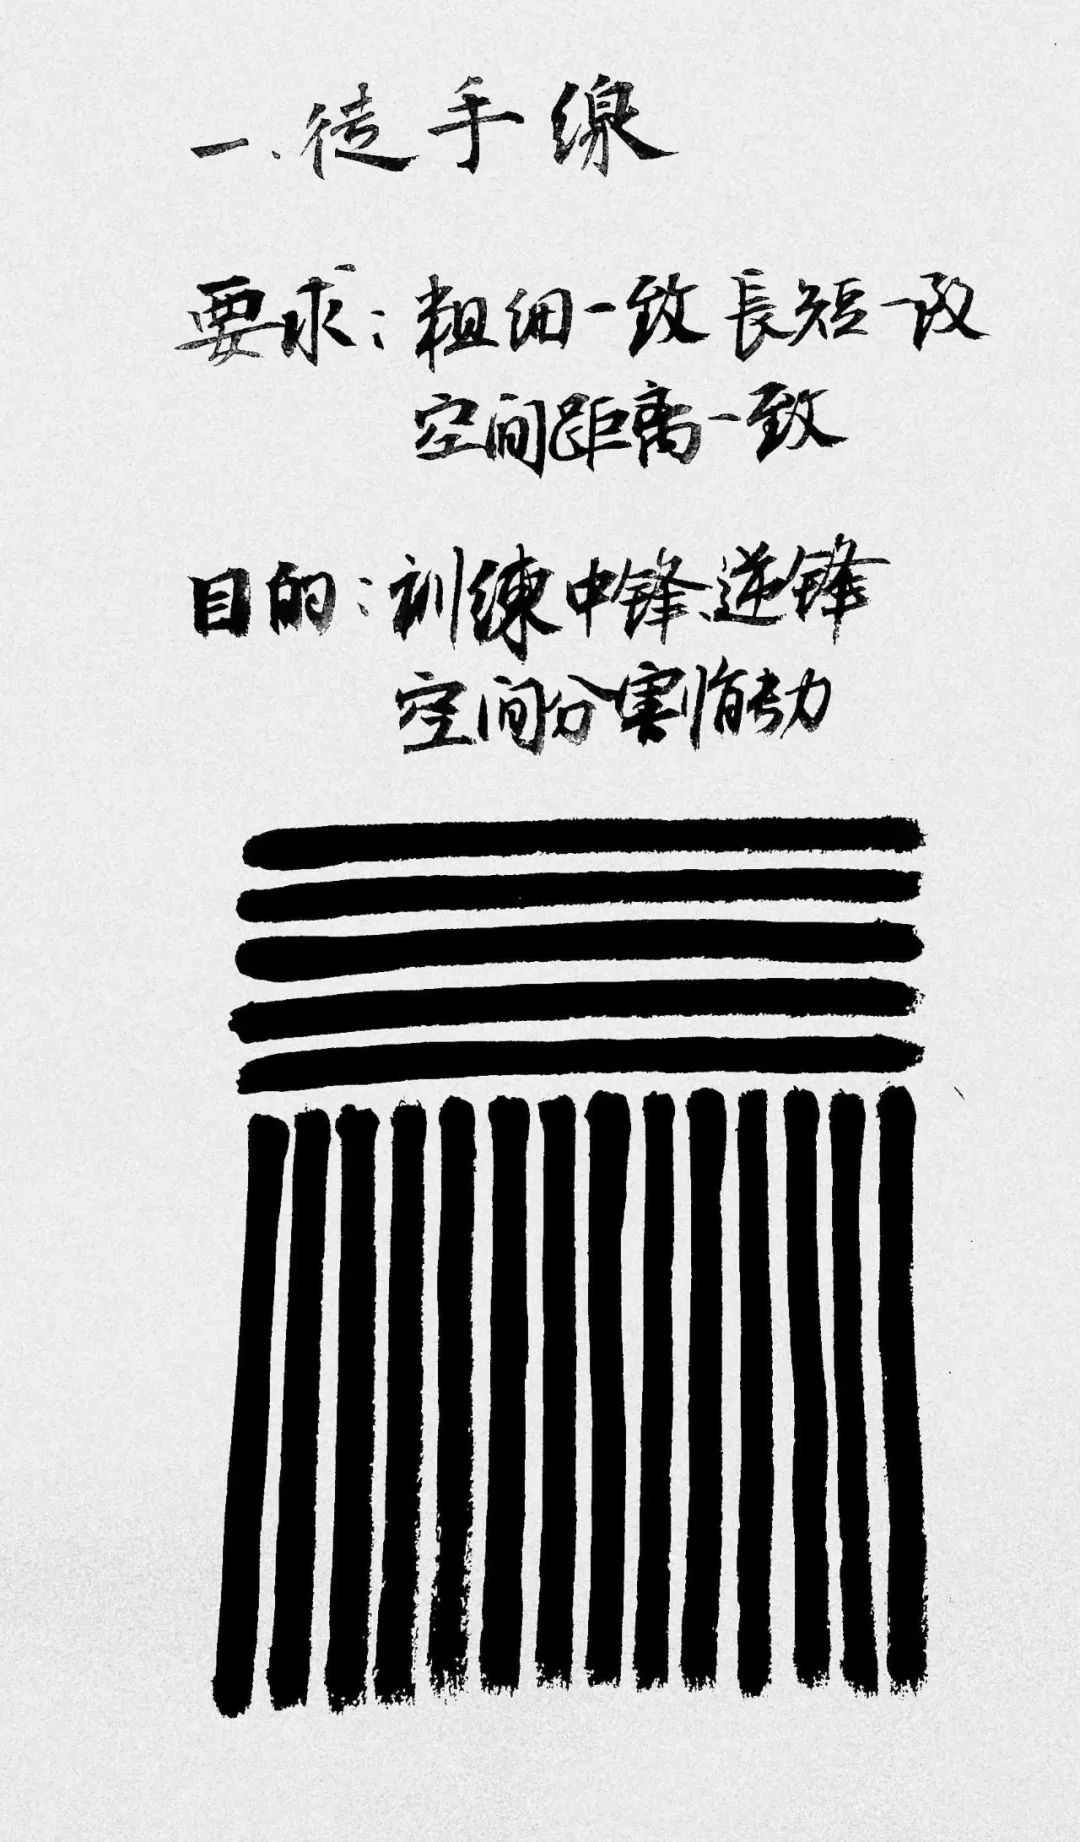 一、徒手線
要求：粗细一致長短一致
空间距离一致
目的：训練中锋、逆锋
空间分割